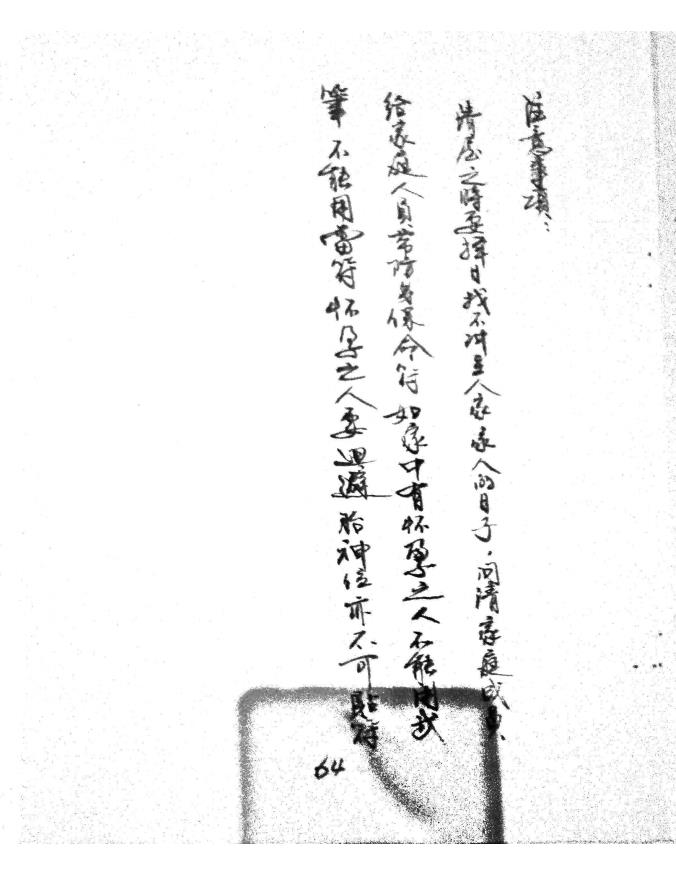 注意事項：
清屋之時要择日找不冲主人家家人的日子，问清家庭成員、
给家庭人員带防身保命符如家中有怀孕之人不能用武
筆不能用當符怀孕之人要迴避胎神位亦不可貼符
64